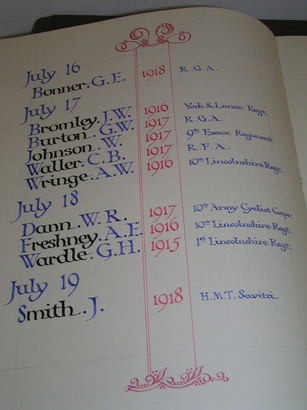 July 16
Bonner. G.E. 1918 R.G.A.
July 17
Bromley. J.W. 1916 York & Lancs. Regt.
Burton. G.W. 1917 R.G.A.
Johnson. W. 1917 9th Essex Regiment
Waller. C.B. 1917 R.F.A.
Wringe. A.W. 1916 10th Lincolnshire Regt.
July 18
Dann. W.R. 1917 10th Army Cyclist Corps.
Freshney. A.E. 1916 10th Lincolnshire Regt.
Wardle. G.H. 1915 1st Lincolnshire Regt.
July 19
Smith. J. 1918 H.M.T. Savitri